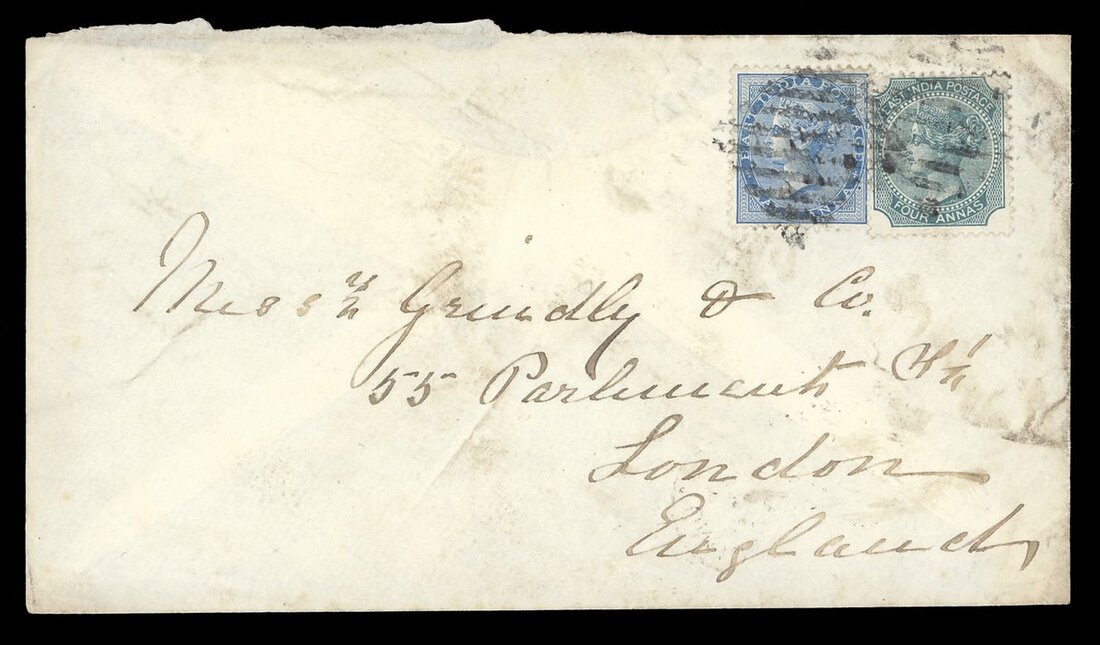 EAST INDIA POSTAGE
EAST INDIA POSTAGE
FOUR ANNAS
Messrs Grindly & Co.
55 Parliment St
London
England